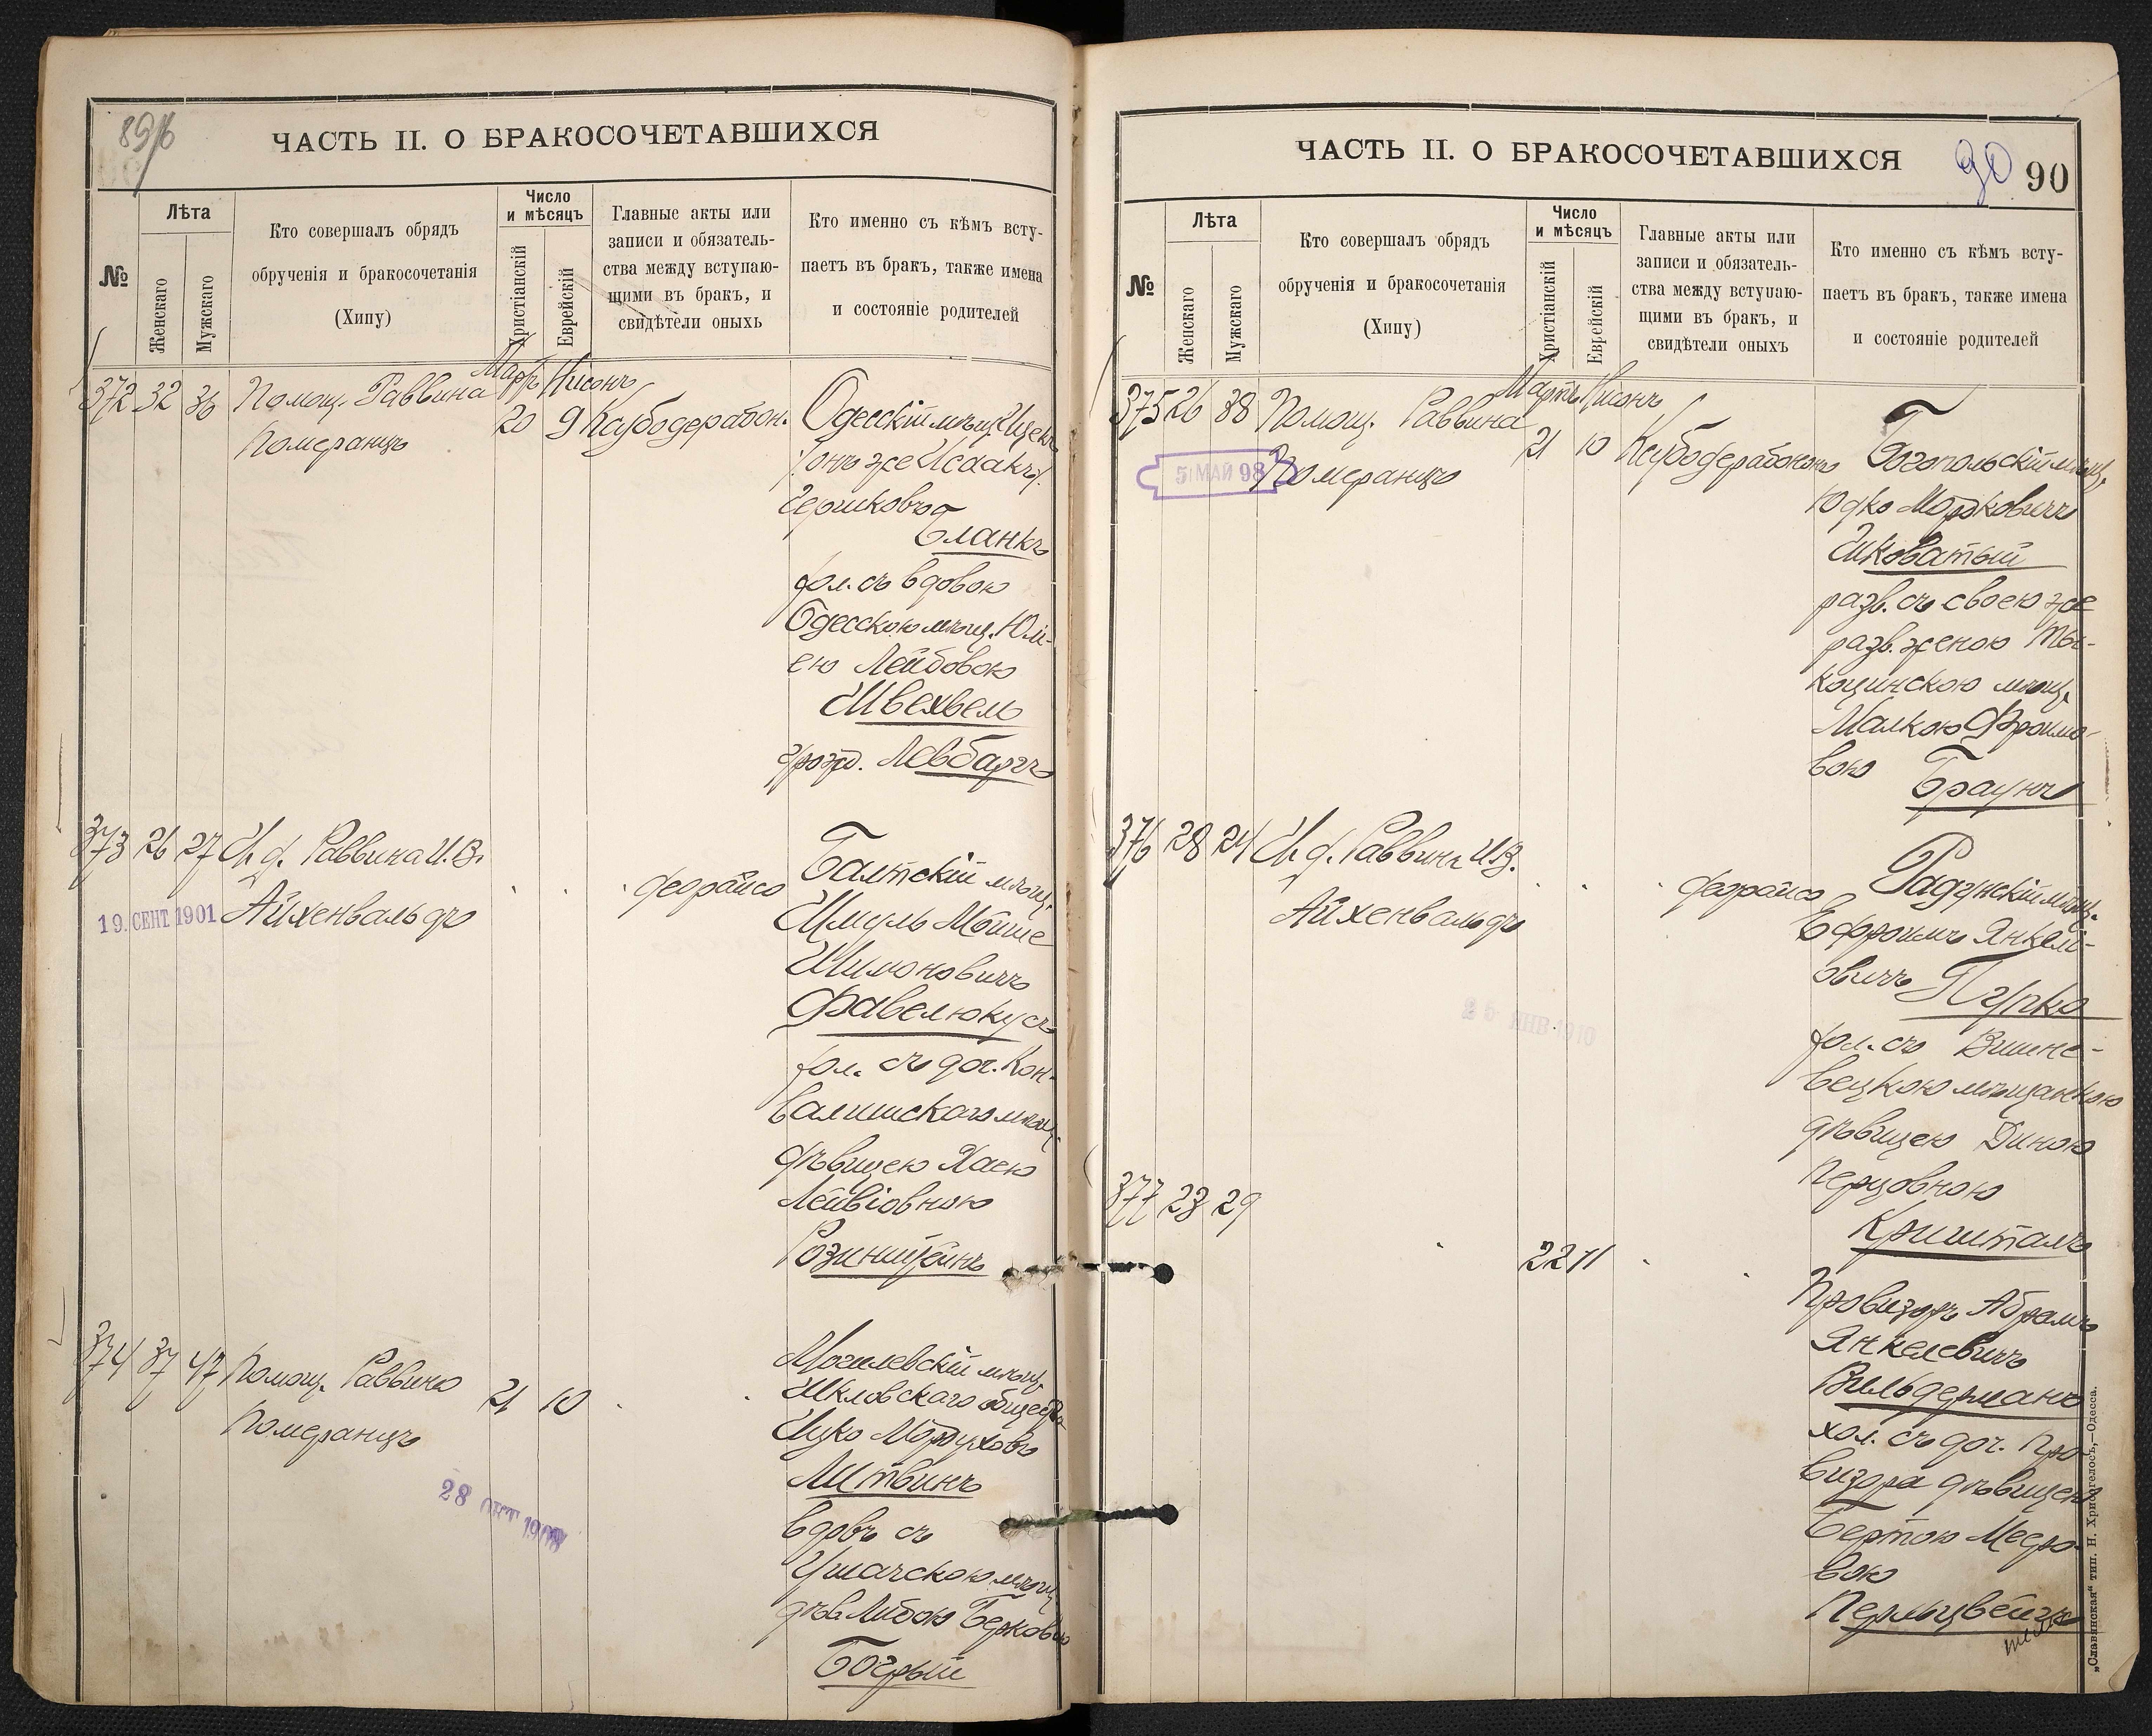 89/б
ЧАСТЬ II. О БРАКОСОЧЕТАВШИХСЯ
№
Лѣта
Женскаго
Мужскаго
Кто совершалъ обрядъ
обрученія и бракосочетанія
(Хипу)
Число
и мѣсяцъ
Христіанскій
Еврейскій
Главные акты или
записи и обязатель-
ства между вступаю-
щими въ бракъ, и
свидѣтели оныхъ
Кто именно съ кѣмъ всту-
паетъ въ бракъ, также имена
и состояніе родителей
372 32 36 Помощ. Раввина
Померанцъ
Мартъ Нисонъ
20 9
Одесскій мѣщ. Ицекъ
/онъ же Исаакъ/
Гершковъ
Бланкъ
хол. съ вдовою
Одесскою мѣщ. Юлі-
ею Лейбовою
Швехвель
урожд. Левбаргъ
373 26 27 И. д. Раввина И. В.
Айхенвальдъ
19. СЕНТ 1901
Балтскій мѣщ.
Шмуль Мойше
Шимоновичъ
Фавелюкусъ
хол. съ доч.
мѣщ.
дѣвицею Хаею
Лейвіовною
374 37 47 Помощ. Раввина
Померанцъ
21 10
28 ОКТ
Могилевскій мѣщ.
Шкловскаго общества
Ицко Мордуховъ
Литвинъ
вдовъ съ
Ушачскою мѣщ.
дѣв. Либою Берковою
Богрый
ЧАСТЬ II. О БРАКОСОЧЕТАВШИХСЯ
90 90
№
Лѣта
Женскаго
Мужскаго
Кто совершалъ обрядъ
обрученія и бракосочетанія
(Хипу)
Число
и мѣсяцъ
Христіанскій
Еврейскій
Главные акты или
записи и обязатель-
ства между вступаю-
щими въ бракъ, и
свидѣтели оныхъ
Кто именно съ кѣмъ всту-
паетъ въ бракъ, также имена
и состояніе родителей
375 26 38 Помощ. Раввина
Померанцъ
5 МАЙ 98
Мартъ Нисонъ
21 10
Богопольскій мѣщ.
Юдко Морковичъ
Чиковатый
разв. съ своею же
разв. женою Ты-
коцинскою мѣщ.
Малкою Фроимо-
вою Браунъ
376 28 24 И. д. Раввина И. В.
Айхенвальдъ
ЯНВ 1910
мѣщ.
Ефроимъ Янкеле-
овичъ Пурко
хол. съ Вишне-
вецкою мѣщанкою
дѣвицею Диною
Перцовною
Кришталъ
377 23 29
22 11
Провизоръ Абрамъ
Янкелевичъ
Вильдерманъ
хол. съ доч. Про-
визора дѣвицею
Бертою Мееро-
вою
„Славянская“ тип. Н. Хрисогелосъ,—Одесса.